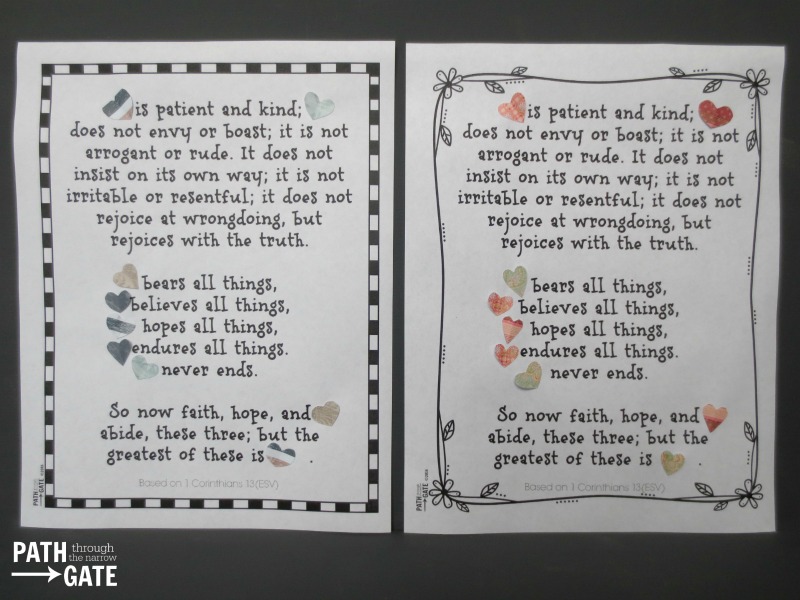 is patient and kind;
does not envy or boast; it is not
arrogant or rude. It does not
insist on its own way; it is not
irritable or resentful; it does not
rejoice at wrongdoing, but
rejoices with the truth.
bears all things,
believes all things,
hopes all things,
endures all things.
never ends.
So now faith, hope, and
abide, these three; but the
greatest of these is .
Based on 1 Corinthians 13(ESV)
PATH
GATE
is patient and kind;
does not envy or boast; it is not
arrogant or rude. It does not
insist on its own way; it is not
irritable or resentful; it does not
rejoice at wrongdoing, but
rejoices with the truth.
bears all things,
believes all things,
hopes all things,
endures all things.
never ends.
So now faith, hope, and
abide, these three; but the
greatest of these is
Based on 1 Corinthians 13(ESV)
PATH
GATE
PATH through
the narrow
GATE